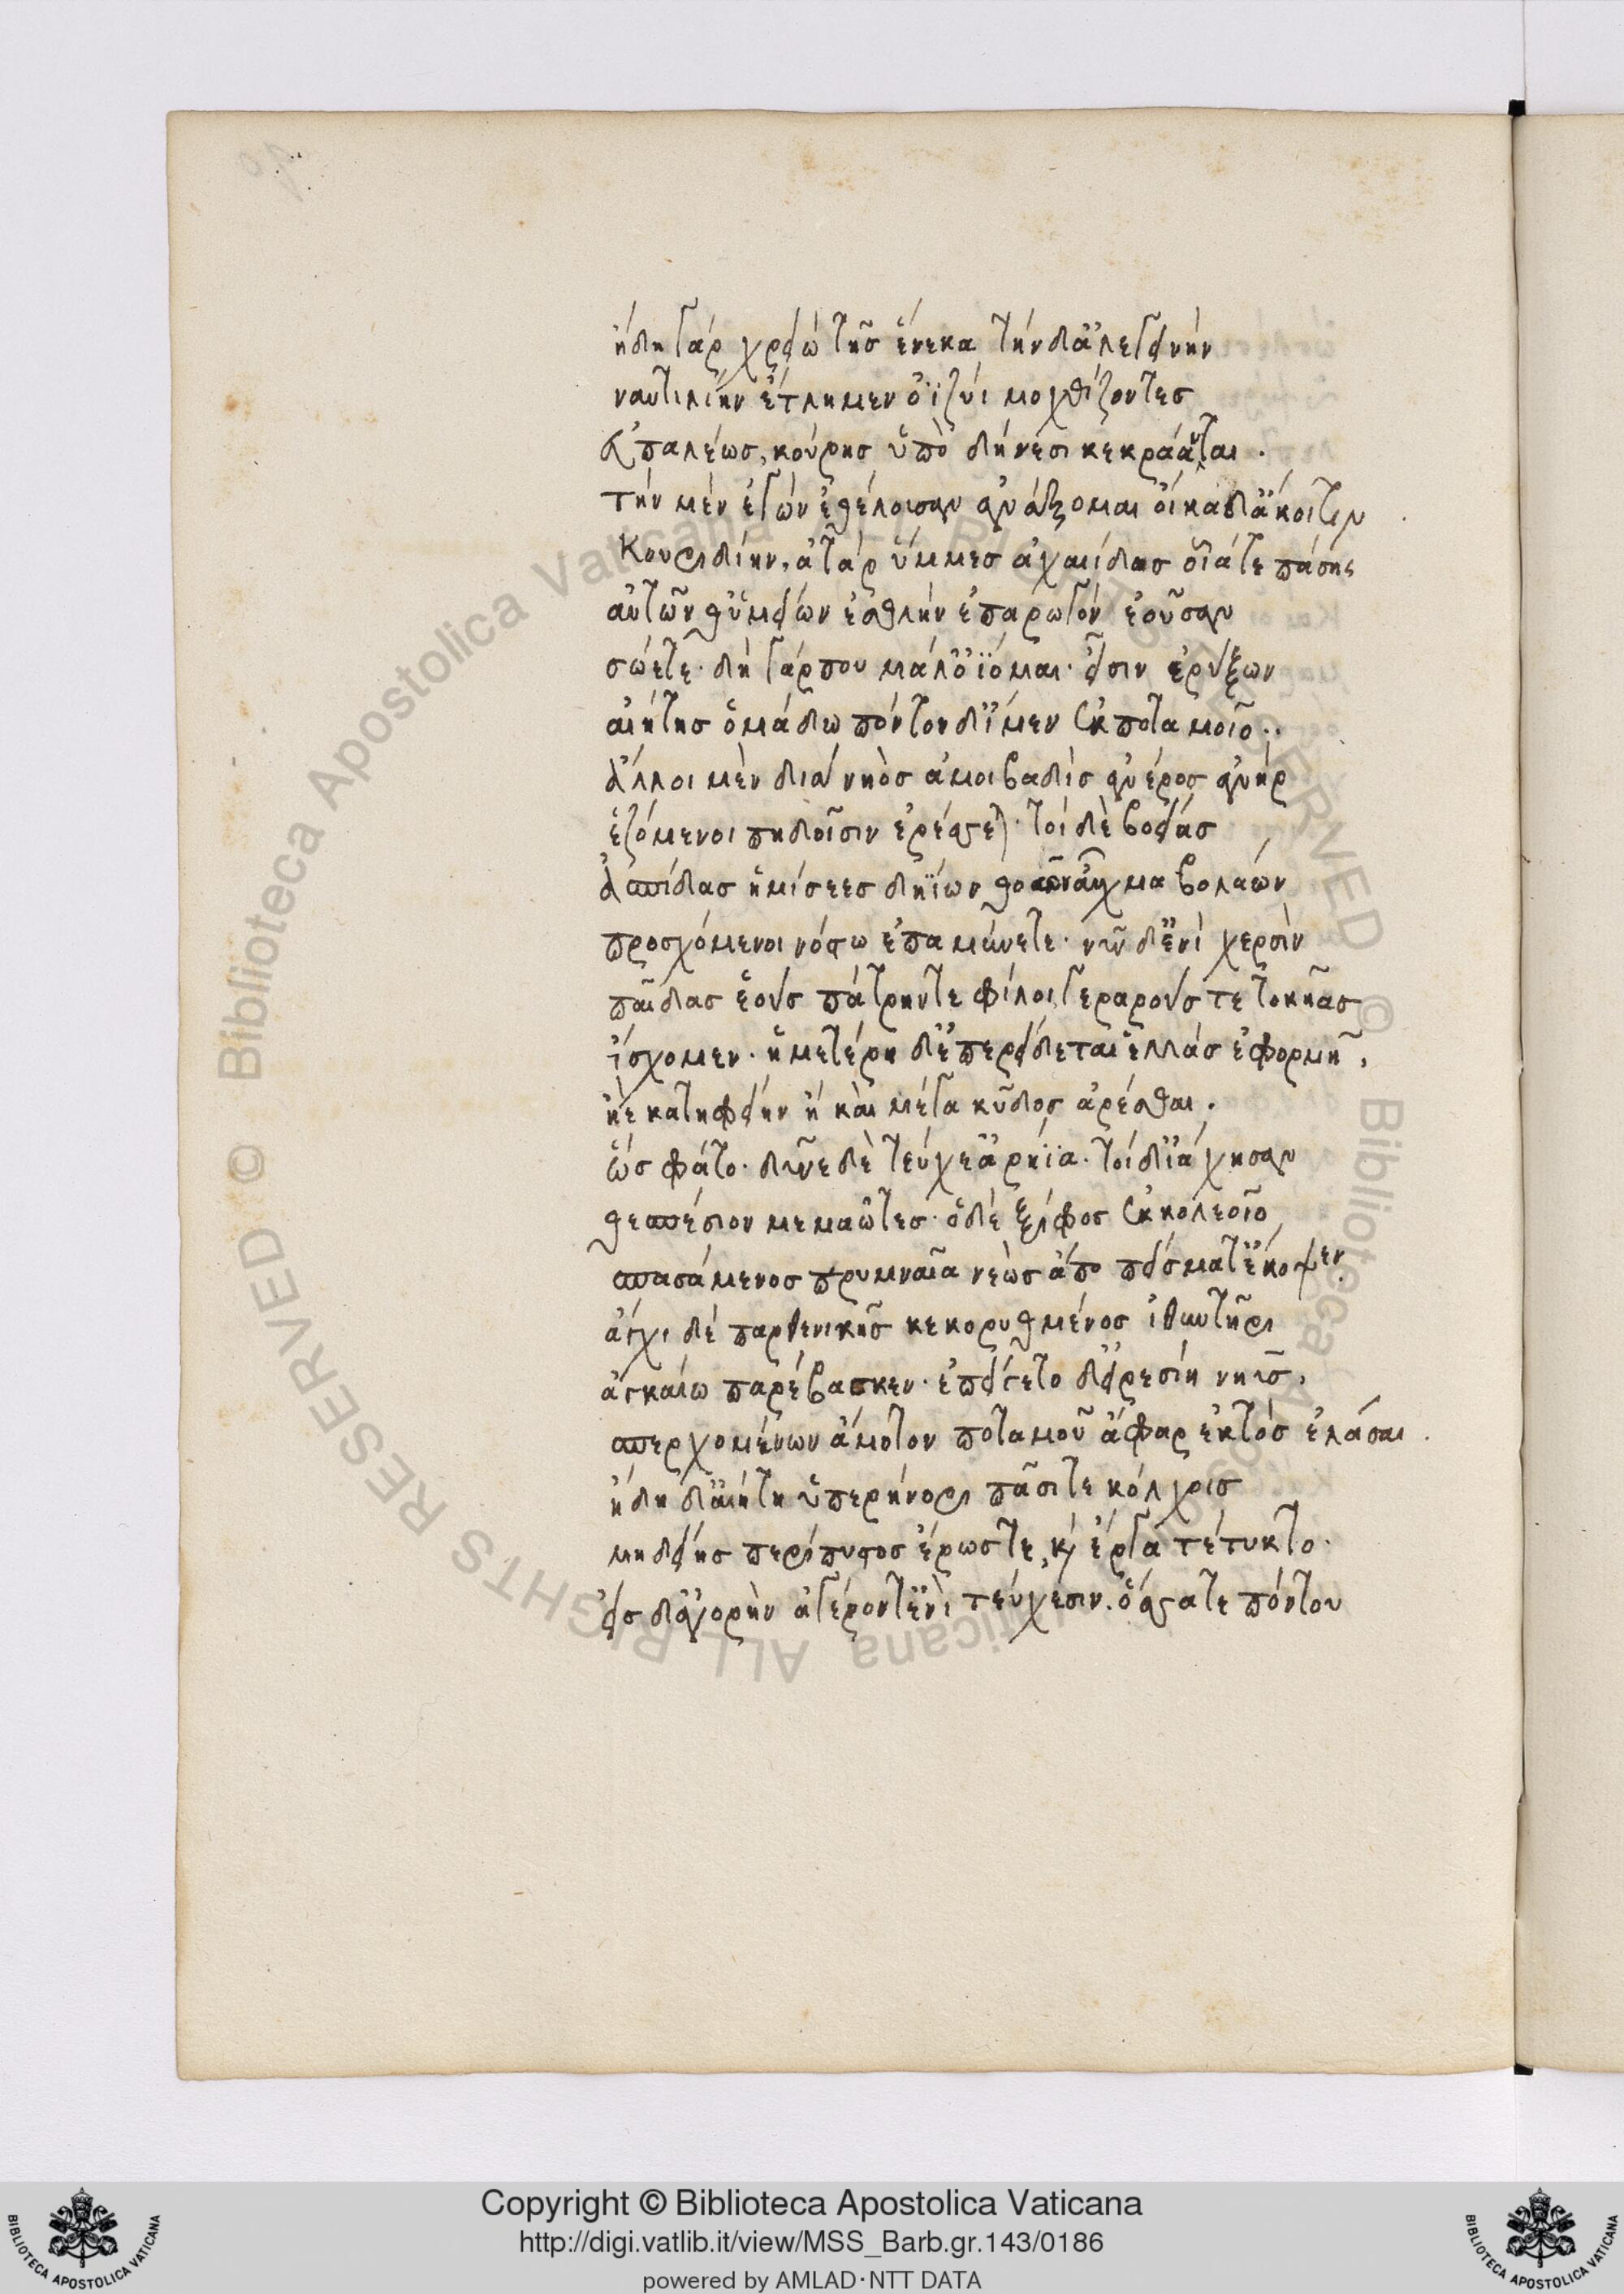 ἤδη γὰρ χρειὼ τῆς ἕνεκα τήνδ' ἀλεγεινήν
ναυτιλίην ἔτλημεν ὀϊζύϊ μοχθίζοντες
εὐπαλέως, κούρης ὑπὸ δήνεσι κεκράανται.
τὴν μὲν ἐγὼν ἐθέλουσαν ἀνάξομαι οἴκαδ' ἄκοιτιν
Κουριδίην, ἀτὰρ ὔμμες ἀχαιίδος οἷά τε πάσης
αὐτῶν θ' ὑμείων ἐσθλὴν ἐπαρωγὸν ἐοῦσαν
σώετε. δὴ γάρ που μάλ' ὀΐομαι. εἶσιν ἐρύξων
αἰήτης ὁμάδω πόντον δ' ἴμεν ἐκ ποταμοῖο..
ἀλλ' οἱ μὲν διὰ νηὸς ἀμοιβαδὶς ἀνέρος ἀνὴρ
ἑζόμενοι πηδοῖσιν ἐρέσσετε. τοὶ δὲ βοείας
ἀσπίδας ἡμίσεες δηΐων θοὸν ἔχμα βολάων
προσχόμενοι νόστω ἐπαμύνετε. νῦν δ' ἐνὶ χερσὶν
παῖδας ἑοὺς πάτρην τε φίλοι, γεραρούς τε τοκῆας
ἴσχομεν. ἡμετέρη δ' ἐπερείδεται ἑλλὰς ἐφορμῆ,
ἠὲ κατηφείην ἢ καὶ μέγα κῦδος ἀρέσθαι.
ὣς φάτο. δῦνε δὲ τεύχε' ἀρήϊα. τοὶ δ' ἰάχησαν
θεσπέσιον μεμαῶτες. ὁ δὲ ξίφος ἐκ κολεοῖο
σπασάμενος πρυμναῖα νεὼς ἀπὸ πείσματ' ἔκοψεν.
ἄγχι δὲ παρθενικῆς κεκορυθμένος ἰθυντῆρι
ἀγκαίω παρέβασκεν. ἐπείγετο δ' εἰρεσίη νηῦς,
σπερχομένων ἄμοτον ποταμοῦ ἄφαρ ἐκτὸς ἐλάσαι.
ἤδη δ' αἰήτη ὑπερήνορι πᾶσί τε κόλχοις
μηδείης περίπυστος ἔρως τε, καὶ ἔργα τέτυκτο.
εἰς δ' ἀγορὴν ἀγέροντ' ἐνὶ τεύχεσιν. ὅσσα τε πόντου
Copyright © Biblioteca Apostolica Vaticana
http://digi.vatlib.it/view/MSS_Barb.gr.143/0186
powered by AMLAD·NTT DATA